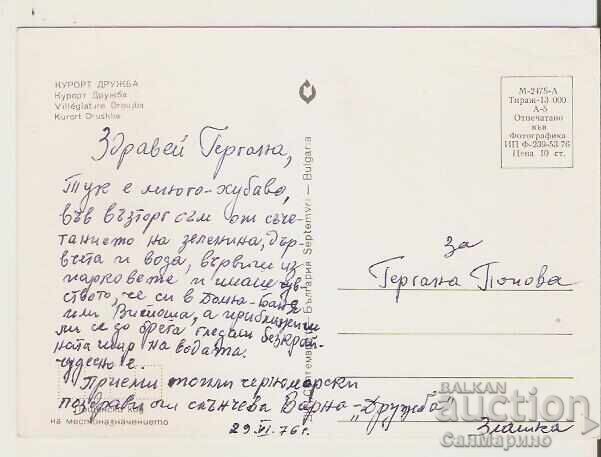 КУРОРТ ДРУЖБА
Курорт Дружба
Villégiature Droujba
Kurort Drushba
М-2475-А
Тираж-13 000
А-5
Отпечатано
във
Фотографика
ИП Ф-239-53 76
Цена 10 ст.
Септември — България Septemvri — Bulgaria
Здравей Гергана,
Тук е много-хубаво,
във възторг съм от съче-
танието на зеленина, дър-
вчета и вода, вървиш из
парковете и имаш чув-
ството, че си в Банкя-
или Витоша, а приближиш
ли се до брега гледаш безкрай-
ната шир на водата.
чудесно е.
Приеми топли черноморски
поздрави от слънчева Варна-„Дружба"
29.VI.76г.
Златка
за
Гергана Попова
на местоназначението
BALKAN
auction
Салмарино